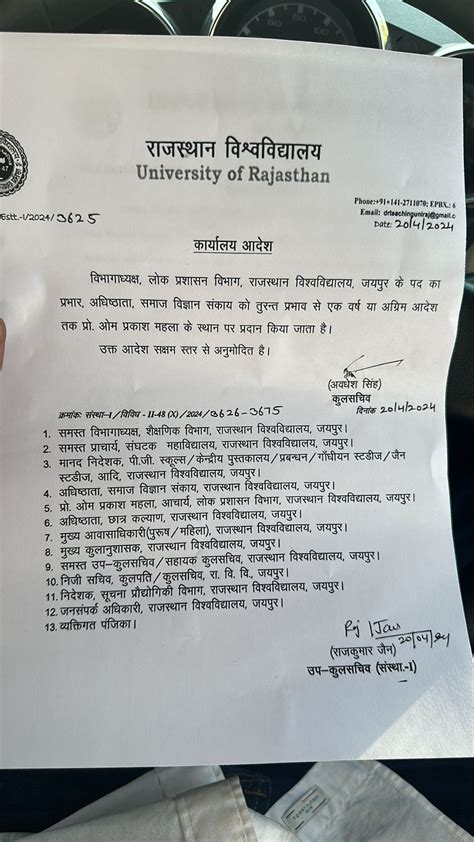 राजस्थान विश्वविद्यालय
University of Rajasthan
Phone:+91+141-2711070; EPBX.: 6
Email: drteachinguniraj@gmail.c
Estt.-I/2024/3625
Date: 20/4/2024
कार्यालय आदेश
विभागाध्यक्ष, लोक प्रशासन विभाग, राजस्थान विश्वविद्यालय, जयपुर के पद का
प्रभार, अधिष्ठाता, समाज विज्ञान संकाय को तुरन्त प्रभाव से एक वर्ष या अग्रिम आदेश
तक प्रो. ओम प्रकाश महला के स्थान पर प्रदान किया जाता है।
उक्त आदेश सक्षम स्तर से अनुमोदित है।
(अवधेश सिंह)
कुलसचिव
क्रमांकः संस्था-I / विविध - II-48 (X) / 2024 / 3626-3675
दिनांक 20/4/2024
1. समस्त विभागाध्यक्ष, शैक्षणिक विभाग, राजस्थान विश्वविद्यालय, जयपुर।
2. समस्त प्राचार्य, संघटक महाविद्यालय, राजस्थान विश्वविद्यालय, जयपुर।
3. मानद निदेशक, पी.जी. स्कूल्स / केन्द्रीय पुस्तकालय / प्रबन्धन / गाँधीयन स्टडीज / जैन
स्टडीज, आदि, राजस्थान विश्वविद्यालय, जयपुर।
4. अधिष्ठाता, समाज विज्ञान संकाय, राजस्थान विश्वविद्यालय, जयपुर।
5. प्रो. ओम प्रकाश महला, आचार्य, लोक प्रशासन विभाग, राजस्थान विश्वविद्यालय, जयपुर।
6. अधिष्ठाता, छात्र कल्याण, राजस्थान विश्वविद्यालय, जयपुर।
7. मुख्य आवासाधिकारी (पुरूष / महिला), राजस्थान विश्वविद्यालय, जयपुर।
8. मुख्य कुलानुशासक, राजस्थान विश्वविद्यालय, जयपुर।
9. समस्त उप-कुलसचिव / सहायक कुलसचिव, राजस्थान विश्वविद्यालय, जयपुर।
10. निजी सचिव, कुलपति / कुलसचिव, रा. वि. वि., जयपुर।
11. निदेशक, सूचना प्रौद्योगिकी विभाग, राजस्थान विश्वविद्यालय, जयपुर।
12. जनसंपर्क अधिकारी, राजस्थान विश्वविद्यालय, जयपुर।
13. व्यक्तिगत पंजिका।
20/04/24
(राजकुमार जैन)
उप-कुलसचिव (संस्था.-I)